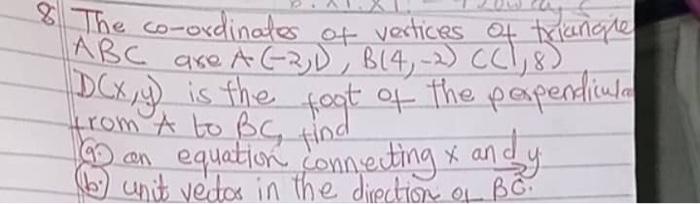 8. The co-ordinates of vertices of triangle
ABC are A(-2,1), B(4,-2) C(1,8)
D(x,y) is the foot of the perpendicula
from A to BC, find
(a.) an equation connecting x and y
(b.) unit vector in the direction of BC.